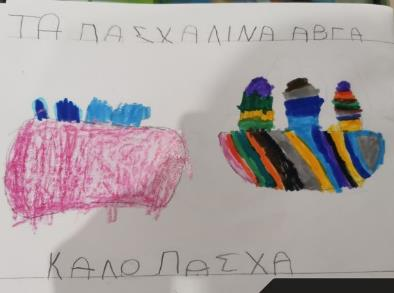 ΤΑ ΠΑΣΧΑΛΙΝΑ ΑΒΓΑ
ΚΑΛΟ ΠΑΣΧΑ